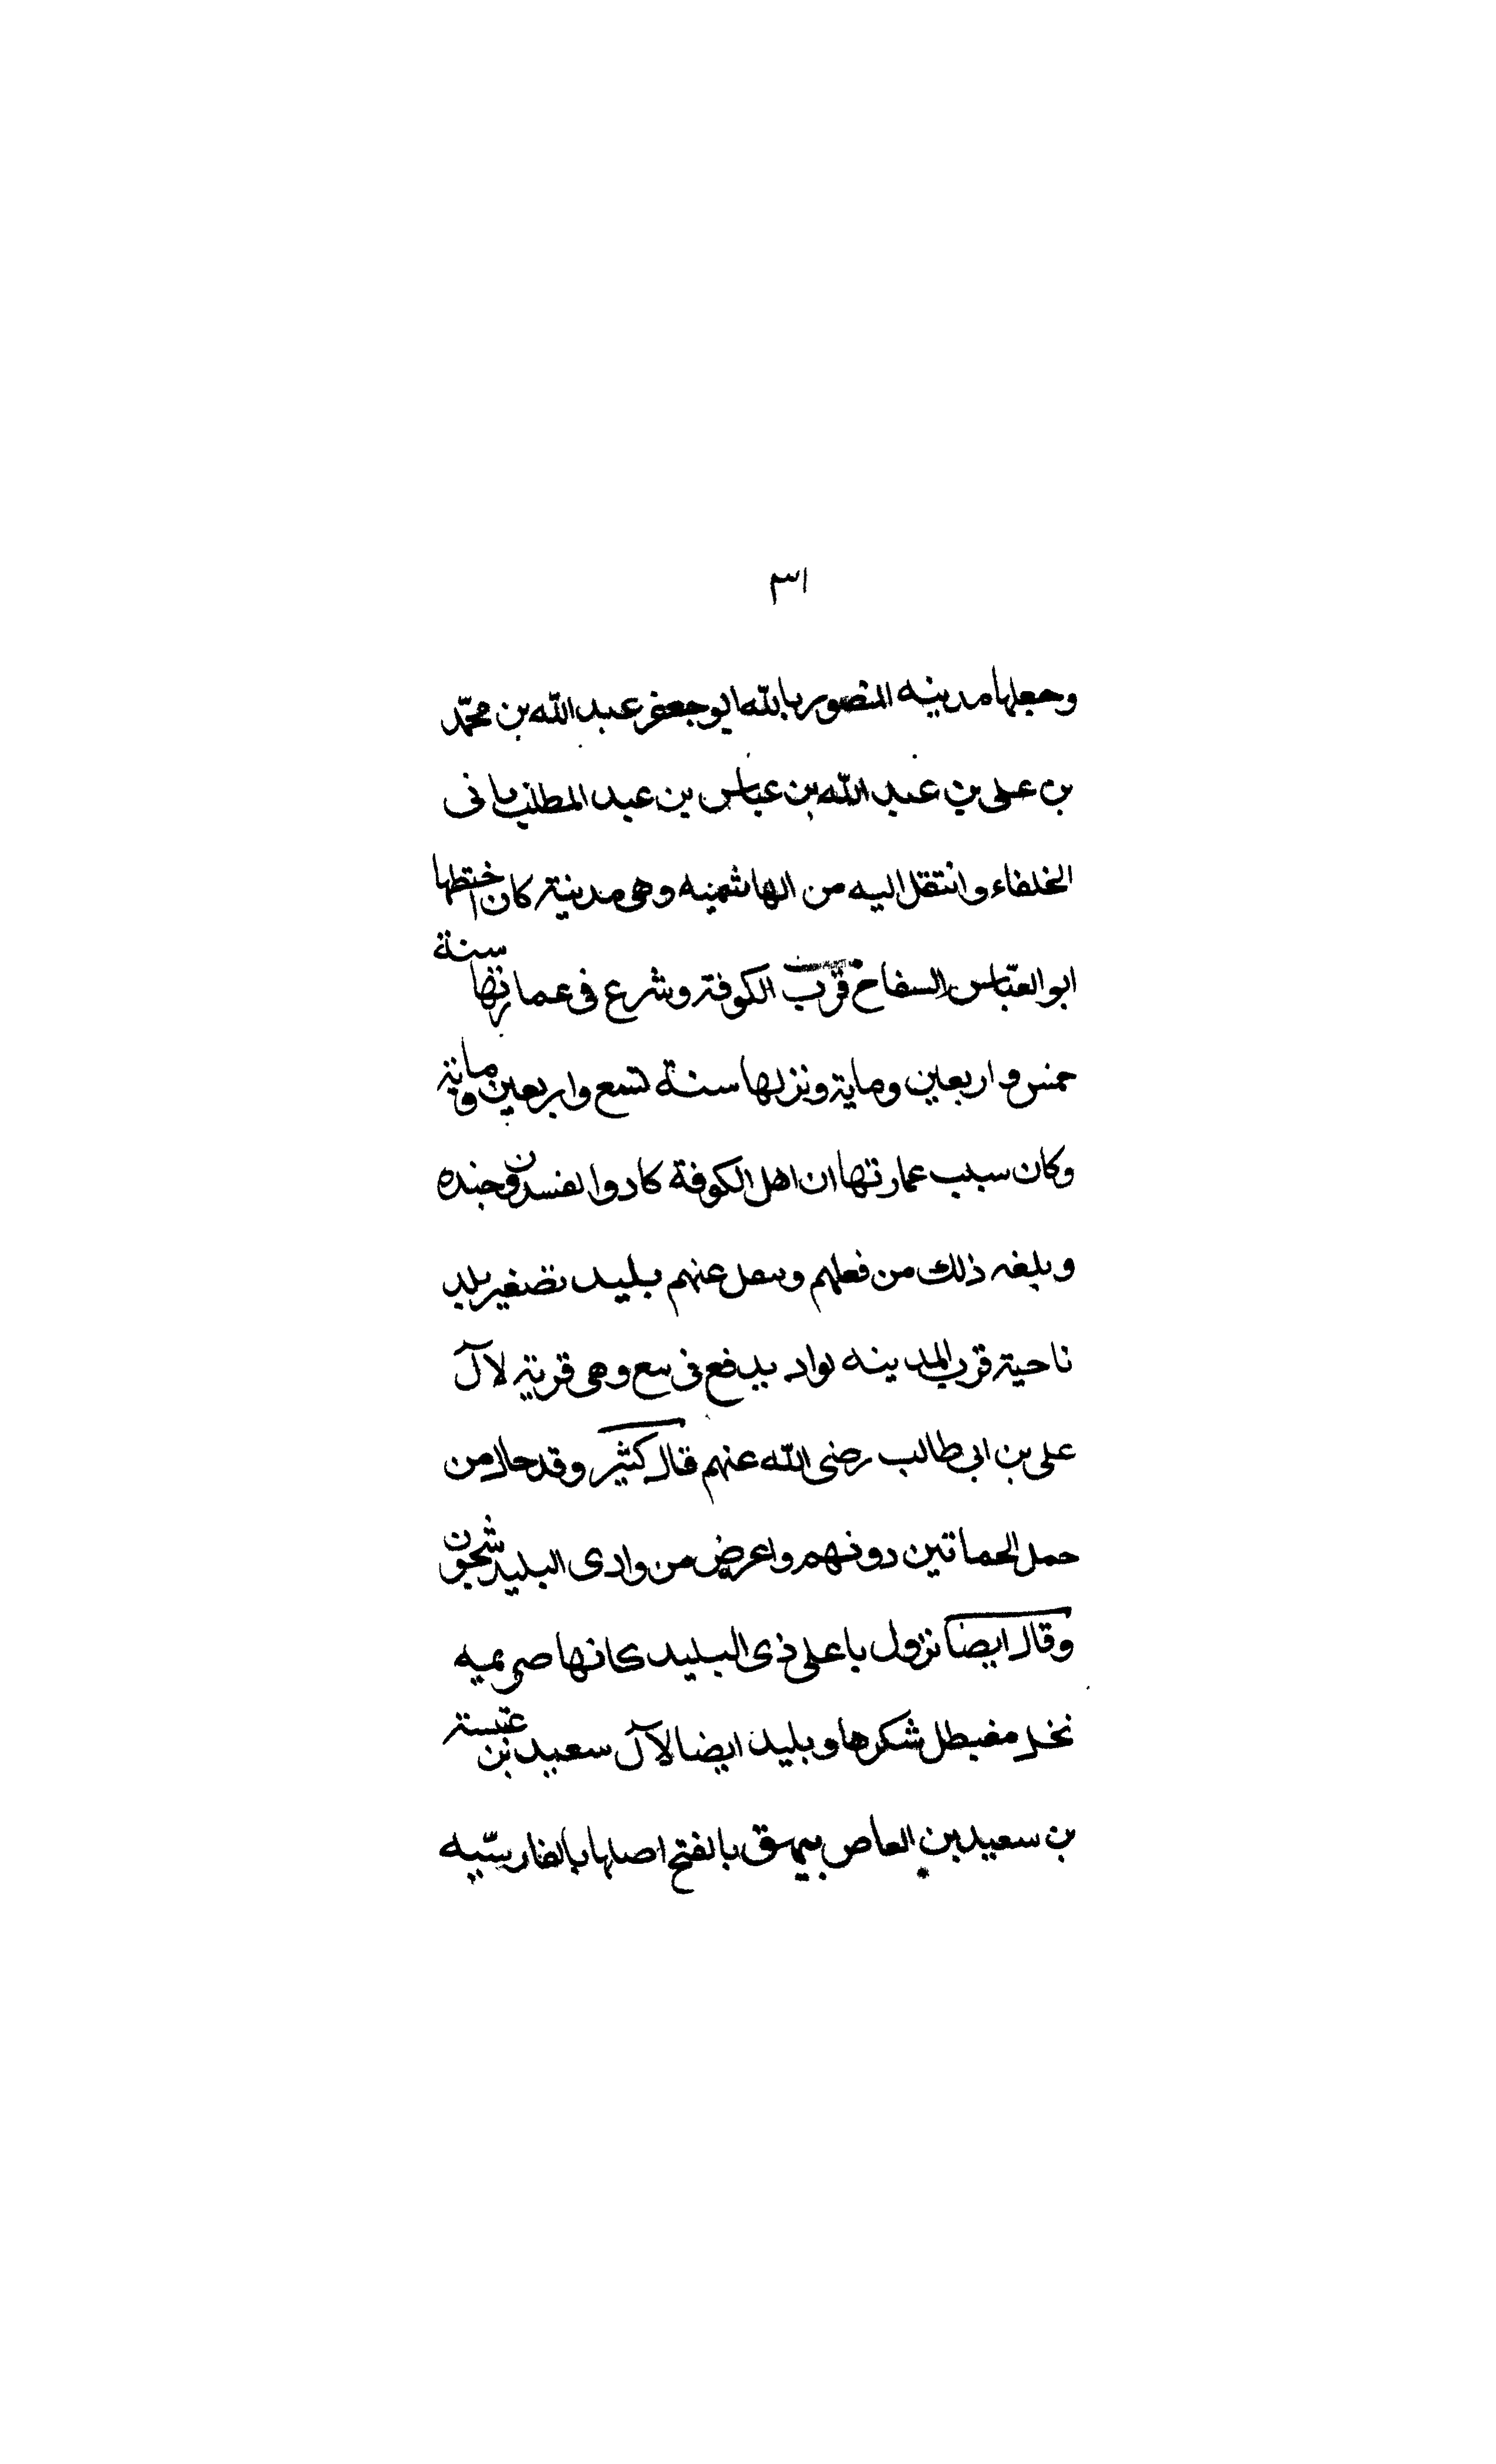 ٣١
وجعلها مدينه المنصور بالله ابو جعفر عبد الله بن محمّد
بن على بن عبد الله بن عباس بن عبد المطلب ثانى
الخلفاء وانتقل اليه من الهاشميه وهى مدينة كان اختطها
ابو العبّاس السفاح قرب الكوفة وشرع فى عمارتها سنة
خمس واربعين وماية ونزلها سنة تسع واربعين وماية
وكان سبب عمارتها ان اهل الكوفة كادوا يفسدون جنده
وبلغه ذلك من فعلهم عنهم بليد تصغير بلد
ناحية قرب المدينه بواد يدفع فى ينبع وهى قرية لآل
على بن ابى طالب رضى الله عنهم قال كثير وقد حال من
حمل الحماتين دونهم واعرض من وادى البليد شجون
وقال ايضا نزول باعلى ذى البليد كانها صريميه
نخل مغبطل شكرها وبليد ايضا لآل سعيد بن عنبسة
بن سعيد بن العاص بيهق بالفتح اصلها بالفارسّيه